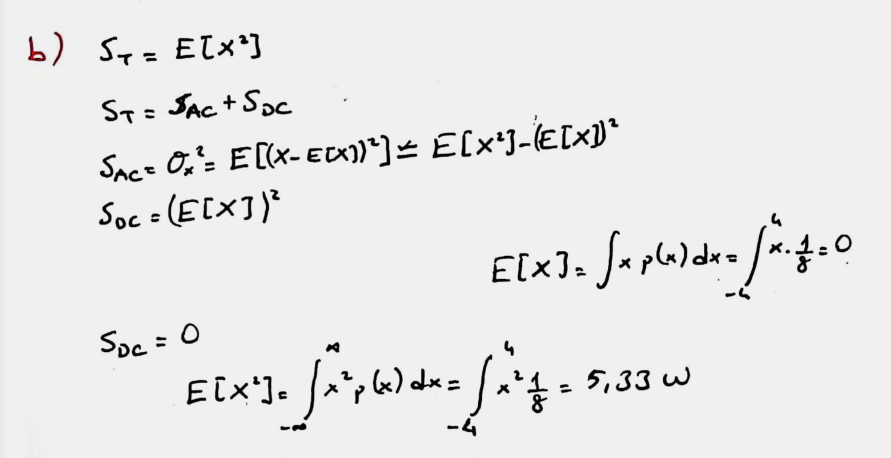 b) S_T = E[x²]
S_T = S_AC + S_DC
S_AC = σ_x² = E[(x - E[x])²] = E[x²] - (E[x])²
S_DC = (E[x])²
E[x] = ∫ x p(x) dx = ∫_{-4}^{4} x · 1/8 = 0
S_DC = 0
E[x²] = ∫_{-∞}^{∞} x² p(x) dx = ∫_{-4}^{4} x² 1/8 = 5,33 W